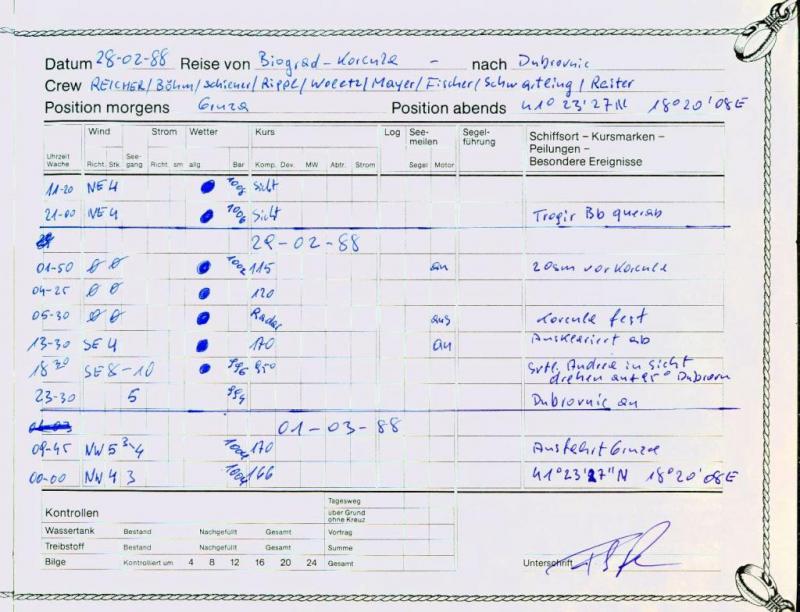 Datum 28-02-88 Reise von Biograd-Korcula - nach Dubrovnic
Crew REICHER/Böhm/Schiener/Rippl/Woletz/Mayer/Fischer/Schwartling/Reiter
Position morgens Gruza Position abends 41° 23'27N 18°20'08E
Wind Strom Wetter Kurs Log See- Segel- Schiffsort – Kursmarken –
meilen führung Peilungen –
Uhrzeit See- Besondere Ereignisse
Wache Richt. Stk. gang Richt. sm allg. Bar Komp. Dev. MW Abtr. Strom Segel Motor
11-20 NE 4 1006 Sicht
21-00 NE 4 1006 Sicht Trogir Bb querab
29-02-88
01-50 Ø Ø 1002 115 an 20sm vor Korcula
04-25 Ø Ø 120
05-30 Ø Ø Radar aus Korcula fest
13-30 SE 4 170 an Ausklariert ab
18 30 SE 8-10 996 950 Svtl. Andrea in Sicht
drehen auf 95° Dubrovn
23-30 5 994 Dubrovnic an
01-03-88
09-45 NW 5 3-4 1004 170 Ausfahrt Gruza
00-00 NW 4 3 1004 166 41°23'27"N 18°20'08E
Kontrollen Tagesweg
über Grund
ohne Kreuz
Wassertank Bestand Nachgefüllt Gesamt Vortrag
Treibstoff Bestand Nachgefüllt Gesamt Summe
Bilge Kontrolliert um 4 8 12 16 20 24 Gesamt Unterschrift